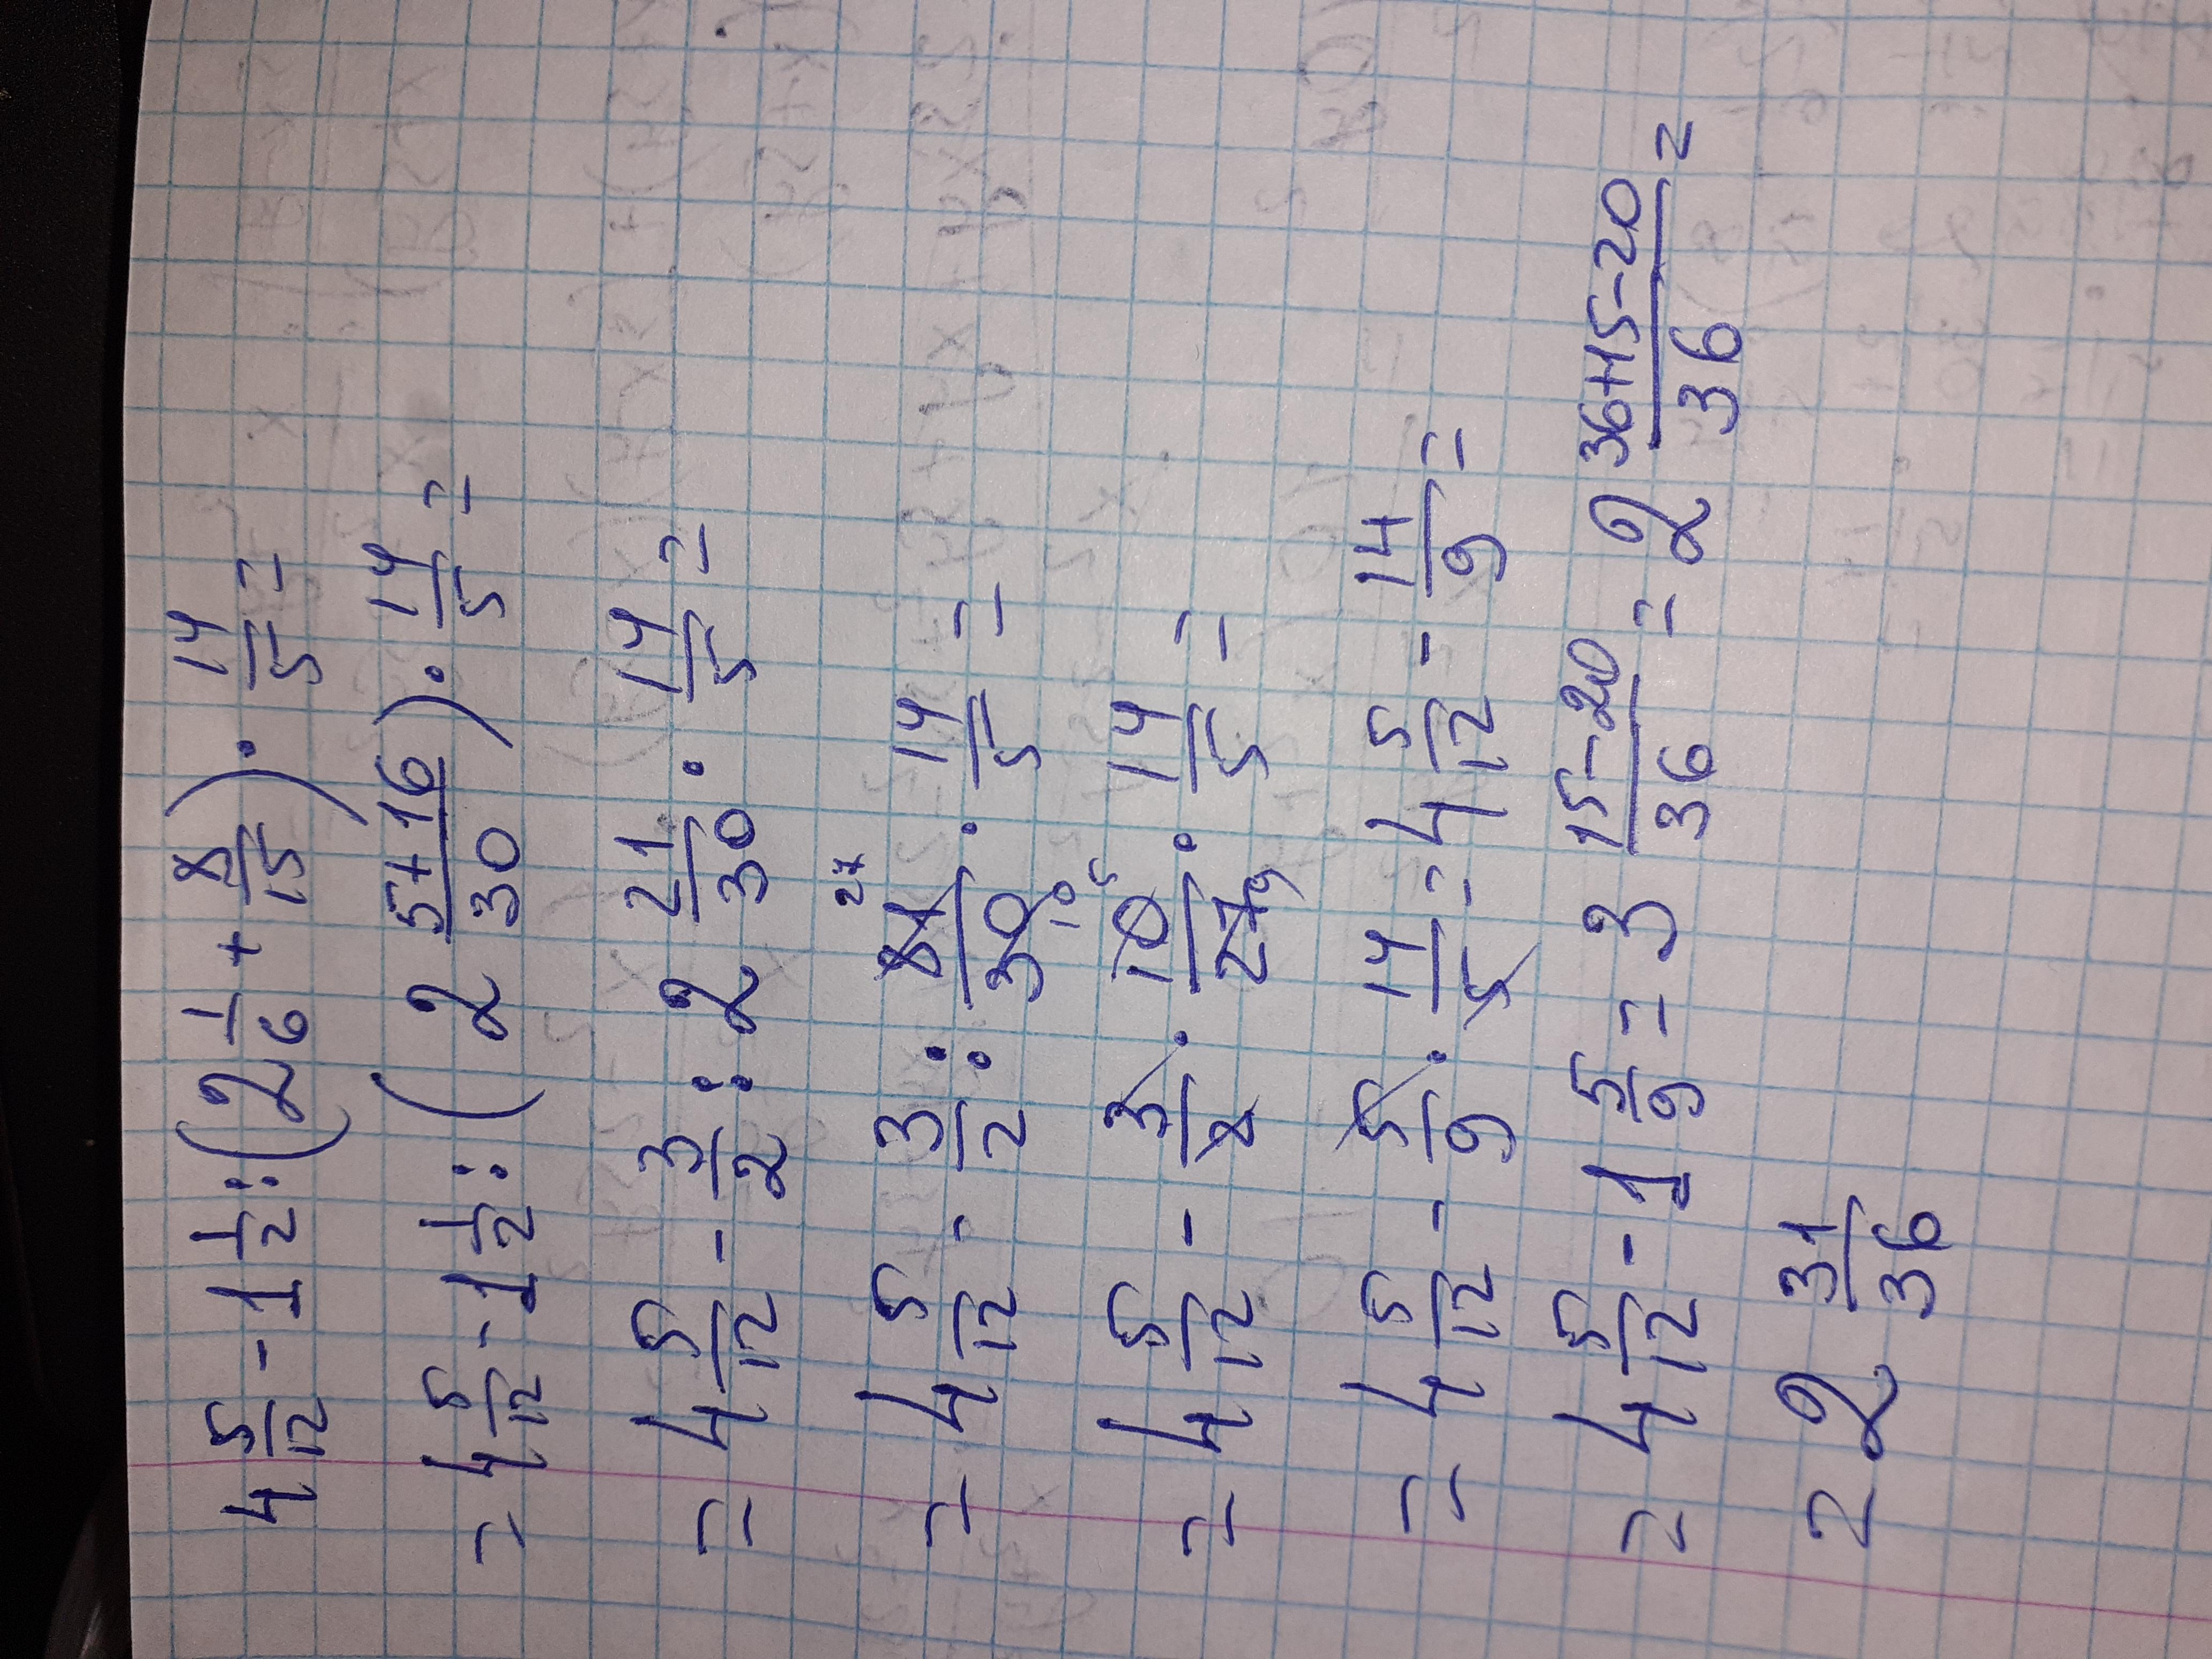 4 5/12 - 1 1/2 : (2 1/6 + 8/15) · 14/5 =
= 4 5/12 - 1 1/2 : (2 5+16/30) · 14/5 =
= 4 5/12 - 3/2 : 2 21/30 · 14/5 =
= 4 5/12 - 3/2 : 81/30 27 10 · 14/5 =
= 4 5/12 - 3/2 · 10/27 5 9 · 14/5 =
= 4 5/12 - 5/9 · 14/5 = 4 5/12 - 14/9 =
= 4 5/12 - 1 5/9 = 3 15-20/36 = 2 36+15-20/36 =
= 2 31/36